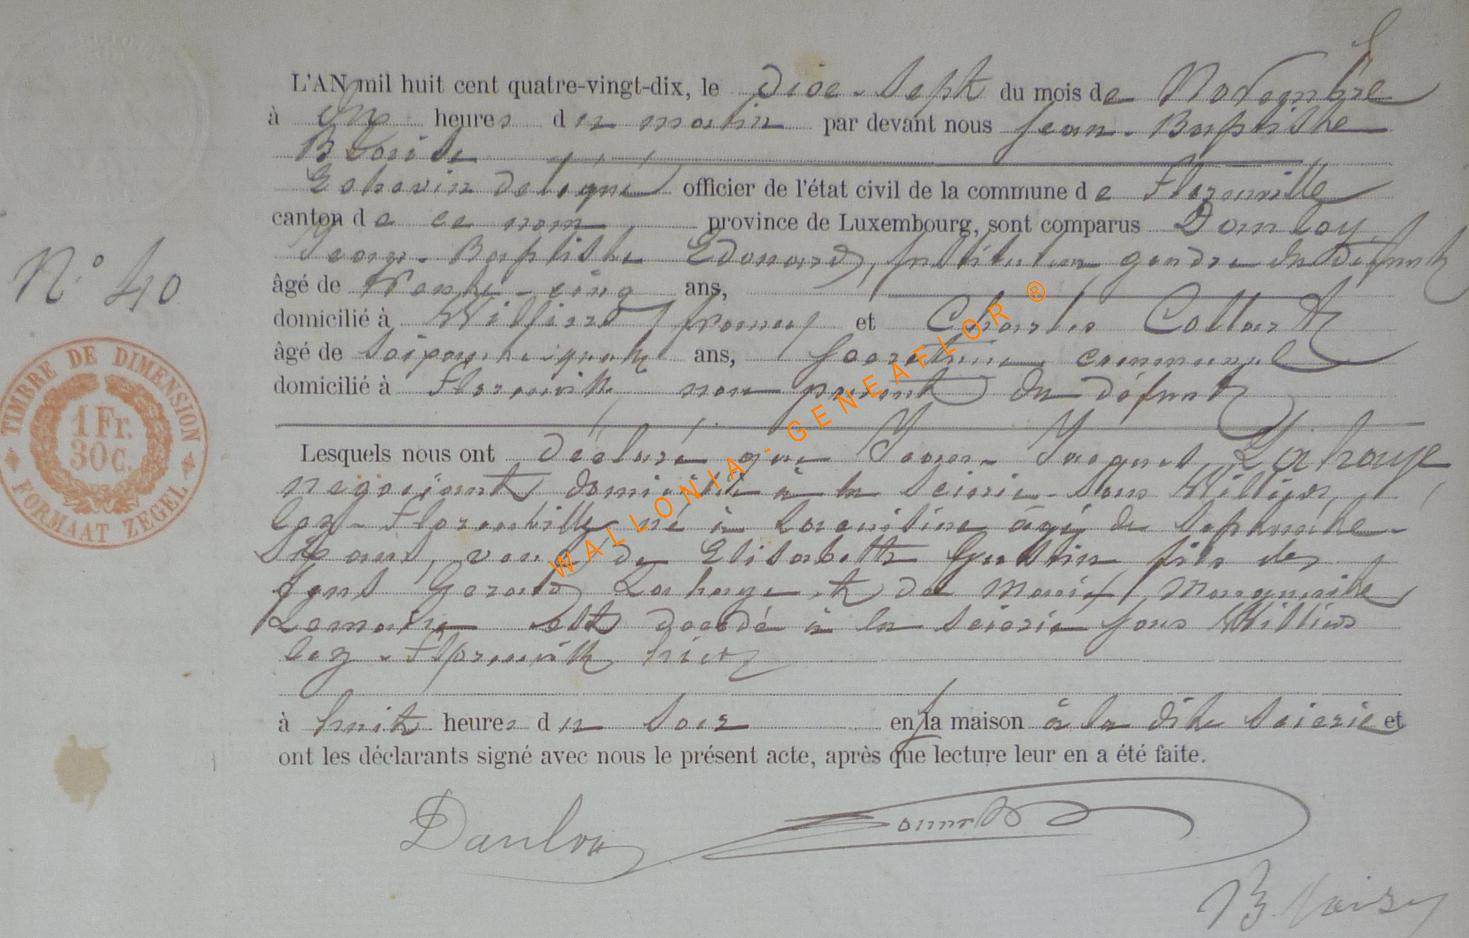 L'AN mil huit cent quatre-vingt-dix, le dix-sept du mois de Novembre
à heures du matin par devant nous Jean-Baptiste
Echevin délégué officier de l'état civil de la commune de Florenville
canton de ce nom province de Luxembourg, sont comparus
Jean-Baptiste Edouard, Instituteur, gendre du défunt
âgé de trente-cinq ans,
domicilié à Williers (france) et Charles Collard
âgé de soixante-quatre ans, Secrétaire communal
domicilié à Florenville non parent du défunt
Lesquels nous ont déclaré que Jean-Jacques Lahaye
négociant domicilié à la Scierie sous Williers,
lez-Florenville né à âgé de septante-
six ans, veuf de Elisabeth fils des
Gérard Lahaye et de Marie Marguerite
Lemaire est décédé à la scierie sous Williers
lez-Florenville hier
à huit heures du soir en la maison à la dite scierie et
ont les déclarants signé avec nous le présent acte, après que lecture leur en a été faite.
N° 40
TIMBRE DE DIMENSION
1 Fr.
30 C.
FORMAAT ZEGEL
WALLONIA-GENEAFLOR ®